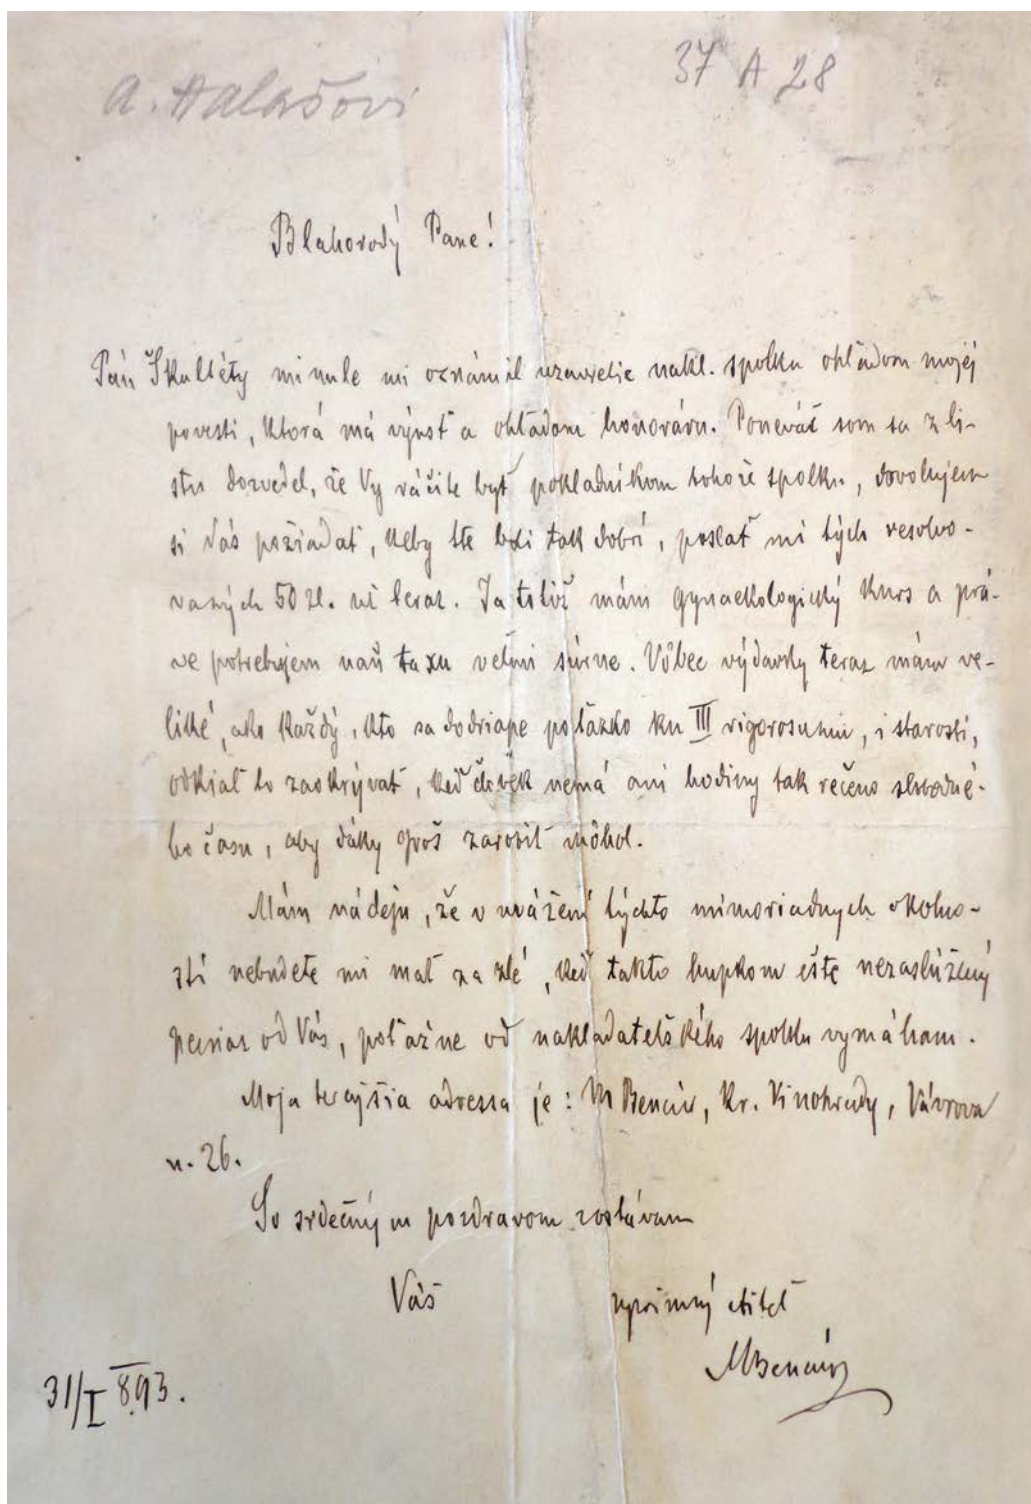 A. Halašovi
37 A 28
Blahorodý Pane!
Pán Škultéty minule mi oznámil uzavretie nakl. spolku ohľadom mojej
povesti, ktorá má výnsť a ohľadom honoráru. Poneváč som sa z li-
stu dozvedel, že Vy ráčite byť pokladníkom tohože spolku, dovoľujem
si Vás požiadať, keby ste boli tak dobrí, poslať mi tých resolvo-
vaných 50 zl. už teraz. Ja totiž mám gynaekologický kurs a prá-
ve potrebujem naň taxu veľmi súrne. Vôbec výdavky teraz mám ve-
liké, ako každý, kto sa dodriape poťažko ku III rigorosumu, i starosti,
odkiaľ to zaokrývať, keď človek nemá ani hodiny tak rečeno slobodné-
ho času, aby dáky groš zarobiť môhol.
Mám nádeju, že v uvážení týchto mimoriadnych okolno-
stí nebudete mi mať za zlé, keď takto hupkom ešte nezaslúžený
peniaz od Vás, poťažne od nakladateľského spolku vymáham.
Moja terajšia adressa je: M Bencúr, Kr. Vinohrady, Vávrova
n. 26.
So srdečným pozdravom zostávam
Váš úprimný ctiteľ
MBencúr
31/I 893.